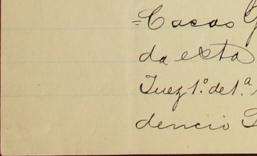 =Casas G
da esta
Juez 1.º de 1.ª
dencio